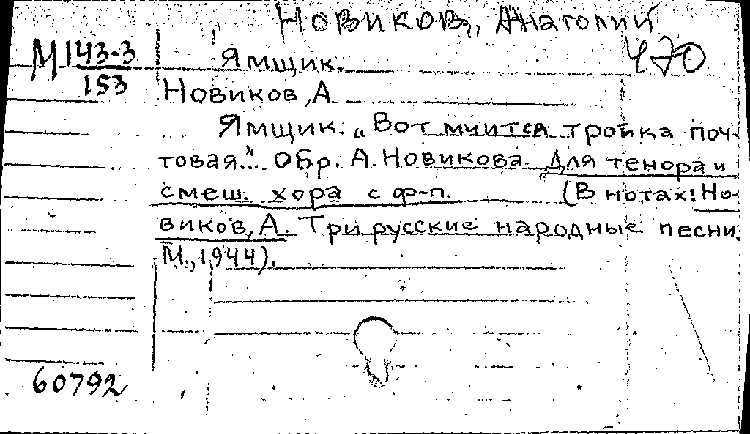 Новиков, Анатолий
М 143-3 Ямщик. 470
153
Новиков, А
Ямщик. „Вот мчится тройка поч-
товая..." Обр. А. Новикова. Для тенора и
смеш. хора с ф-п. (В нотах: Но-
виков, А. Три русские народные песни.
М., 1944).
60792